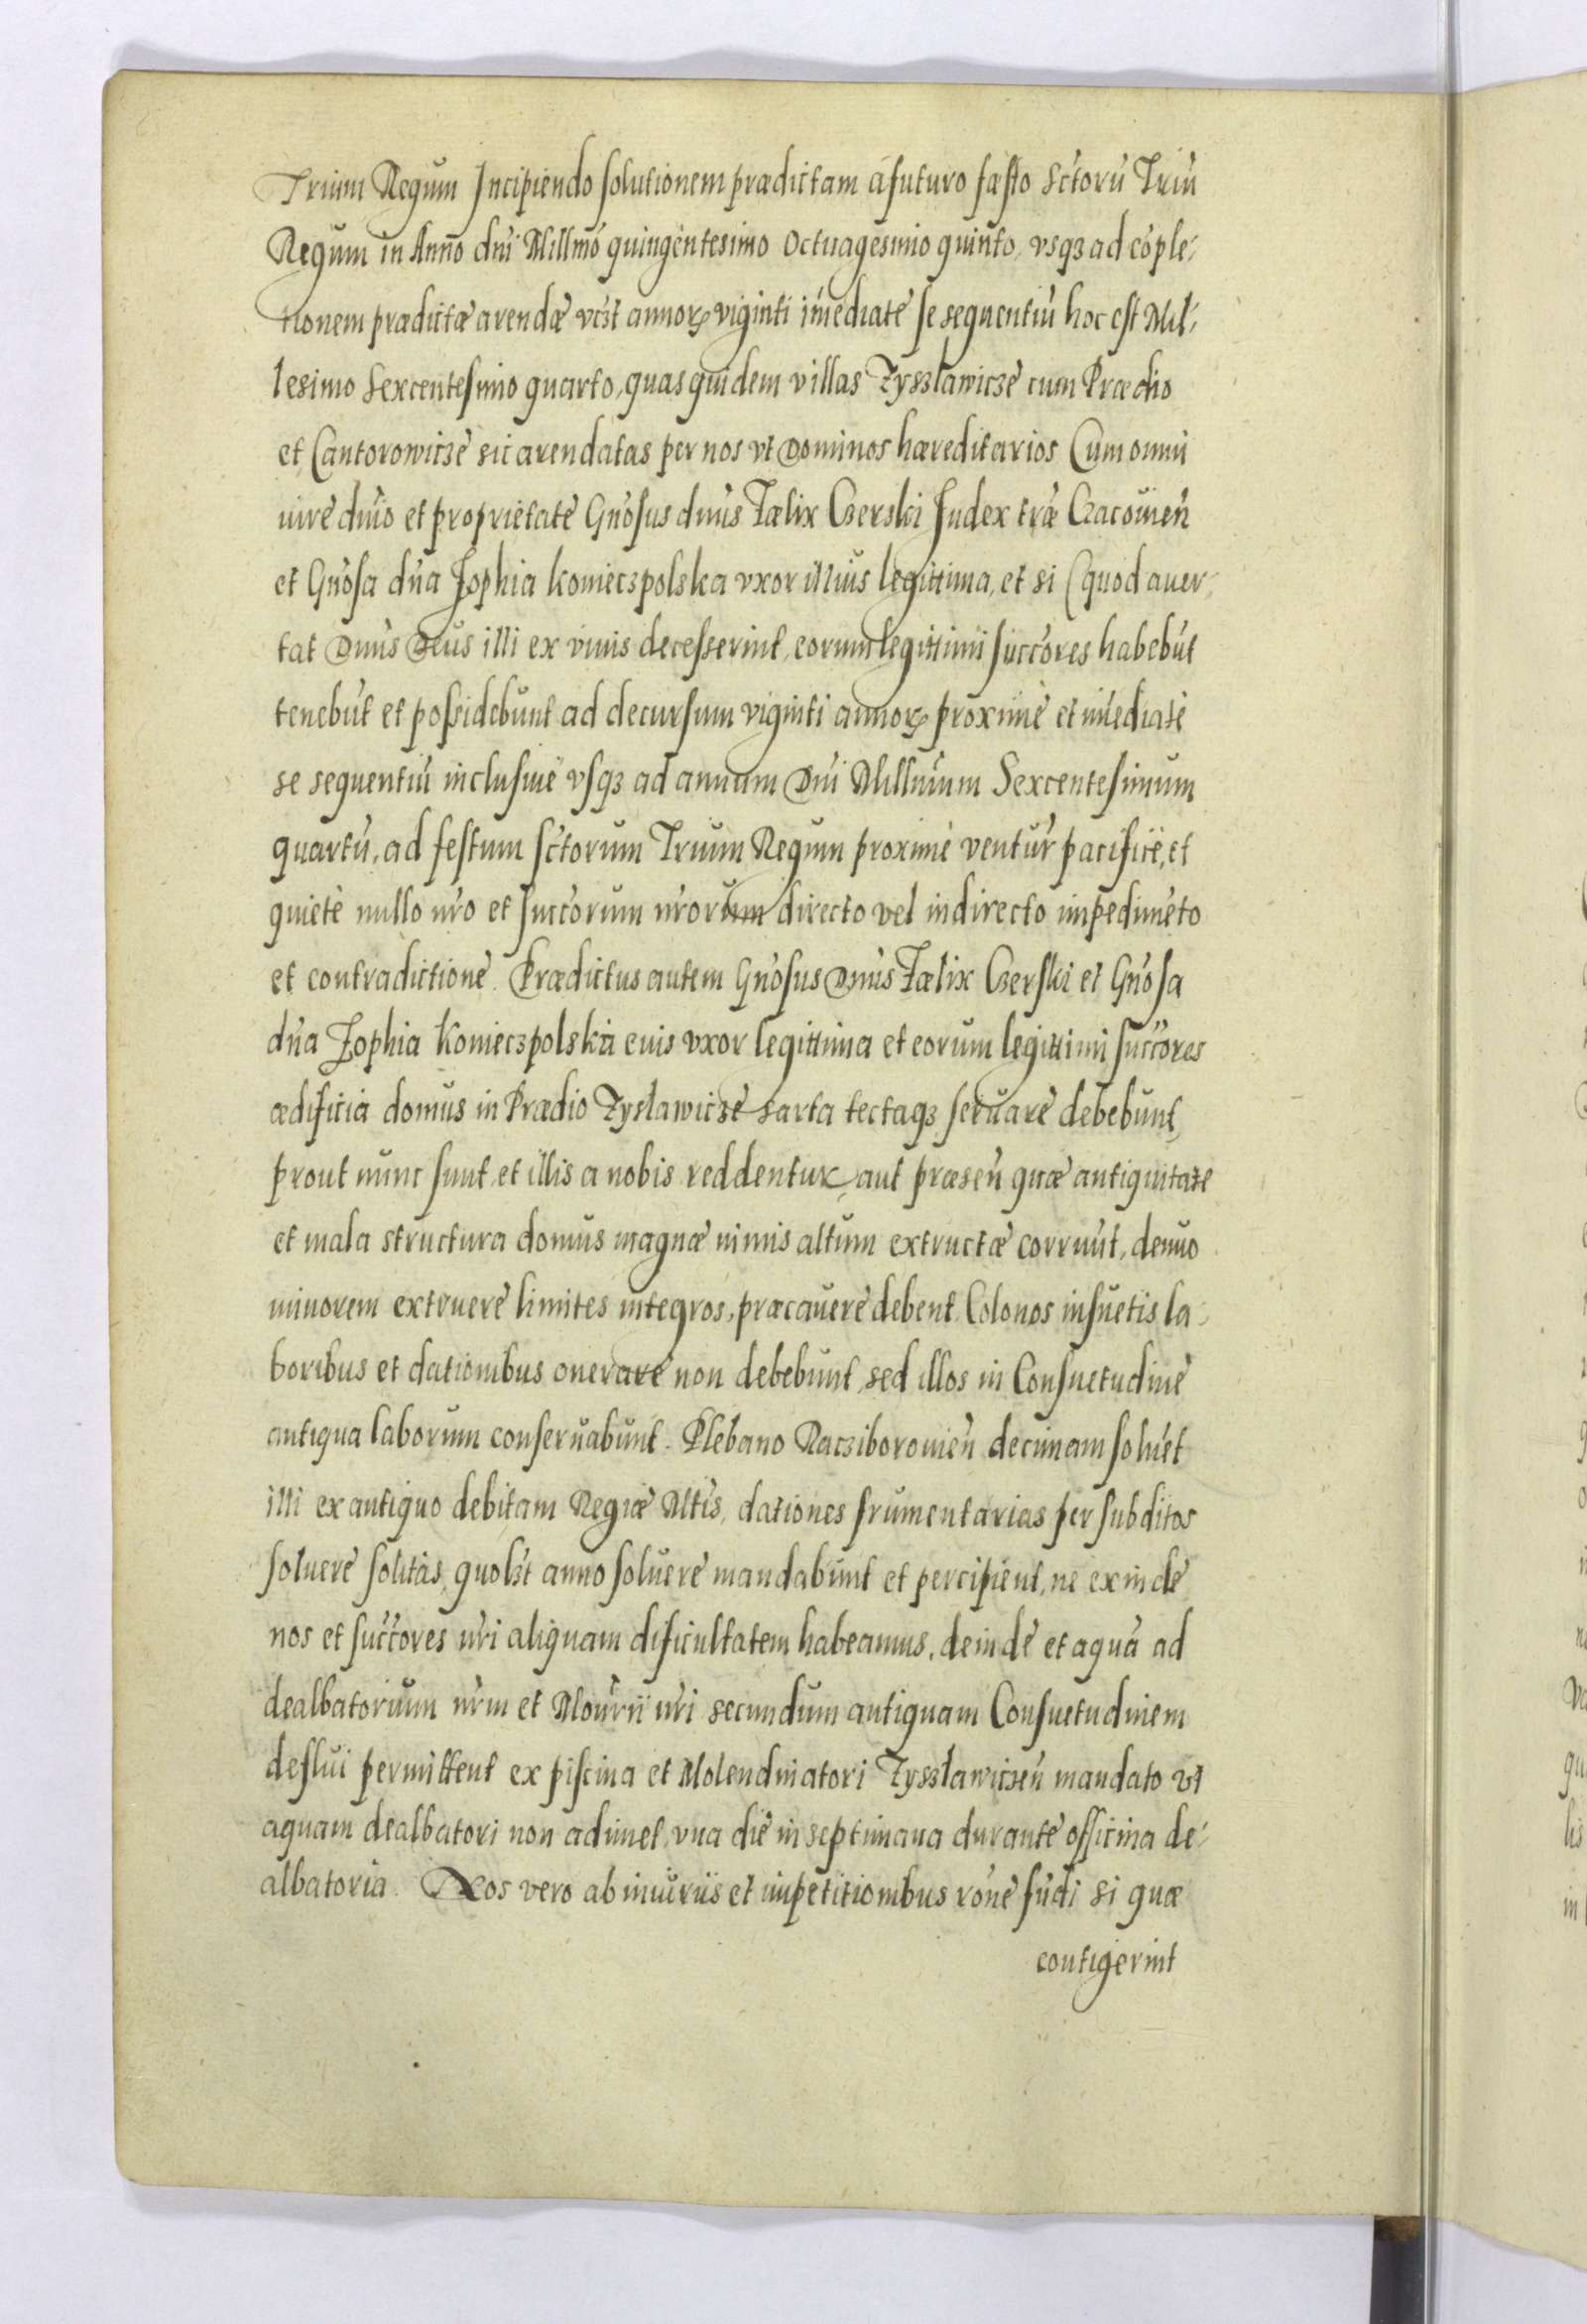 Trium Regum Incipiendo solutionem prædictam á futuro fæsto Sctorú Triú
Regum in Anno dni Millmo quingentesimo Octuagesimo quinto, vsqz ad cóple-
tionem prædictæ arendæ vczt annorꝝ viginti imediate se sequentiú hoc est Mil-
lesimo Sexcentesimo quarto, quas quidem villas Zyszlawicze cum Prædio
et Cantorowicze sic arendatas per nos vt Dominos hæreditarios Cum omni
iure dnio et proprietate Gnosus dnus Fælix Czerski Judex træ Cracouien
et Gnosa dna Zophia Konieczpolska vxor illius legittima, et si (quod auer-
tat Dnus Deus illi ex viuis decesserint, eorum legittimi succores habebút
tenebút et possidebunt ad decursum viginti annorꝝ proxime et imediate
se sequentiú inclusiue vsqz ad annum Dni Millmum Sexcentesimum
quartú, ad festum sctorum Trium Regum proxime ventur pacifice, et
quiete nullo nro et succorum nrorum directo vel indirecto impedimeto
et contradictione. Prædictus autem Gnosus Dnus Fælix Czerski et Gnosa
dna Zophia Konieczpolska euis vxor legittima et eorum legittimi succores
ædificia domus in Prædio Zyslawicze sarta tectaqz seruare debebunt,
prout nunc sunt et illis a nobis reddentur, aut præsen quæ antiquitate
et mala structura domus magnæ nimis altum extructæ corruút, denuo
minorem extruere limites integros, præcauere debent. Colonos insuetis la-
boribus et dationibus onerare non debebunt, sed illos in Consuetudine
antiqua laborum conseruabunt. Plebano Raczibórouien decimam soluét
illi ex antiquo debitam Regiæ Mtis, dationes frumentarias per subditos
soluere solitas, quolzt anno soluere mandabunt et percipient, ne exinde
nos et succores nri aliquam dificultatem habeamus, deinde et aqua ad
dealbatorium nrm et Mourii nri secundum antiquam Consuetudinem
deflui permittent ex piscina et Molendinatori Zyszlawiczen mandato vt
aquam dealbatori non adimet, vna die in septimana durante officina de-
albatoria. Nos vero ab iniuriis et impetitionibus rone fudi si quæ
contigerint